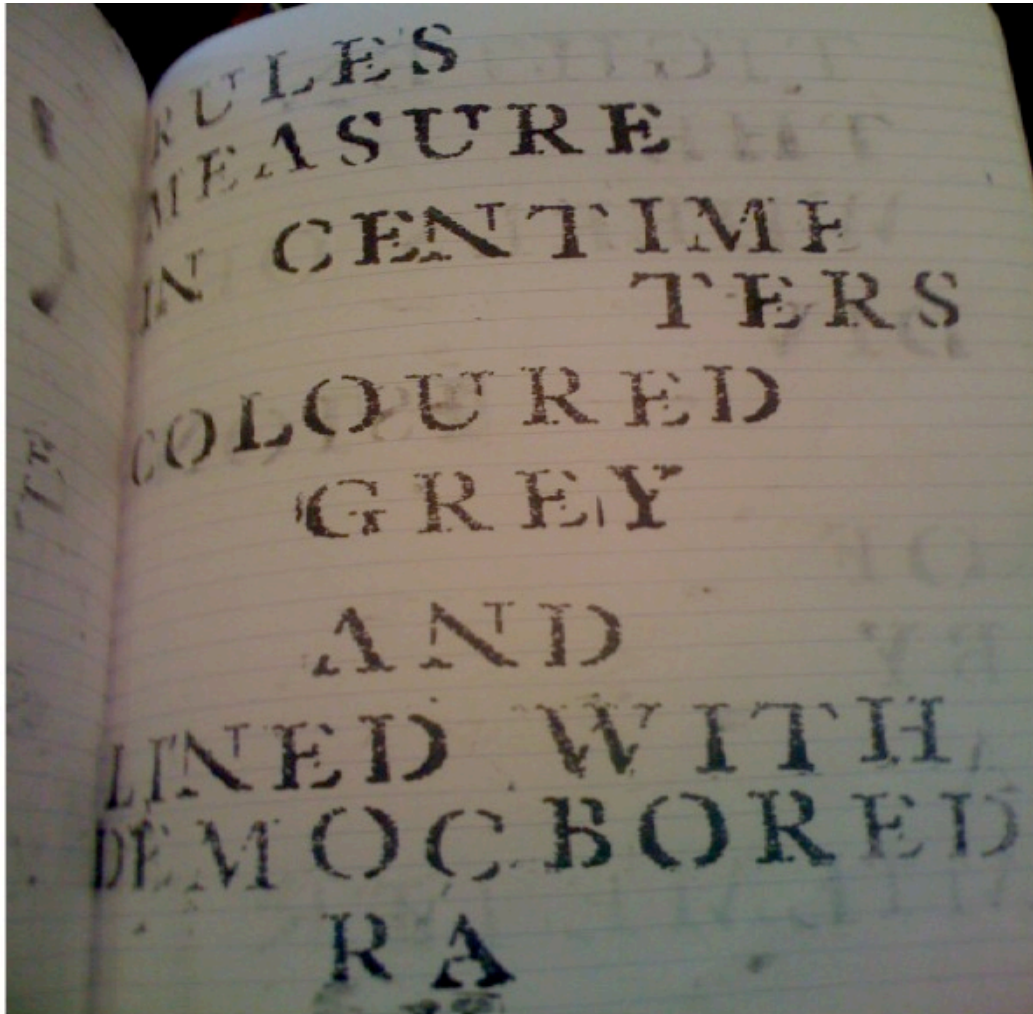 RULES
MEASURE
IN CENTIME
TERS
COLOURED
GREY
AND
LINED WITH
DEMOCBORED
RA